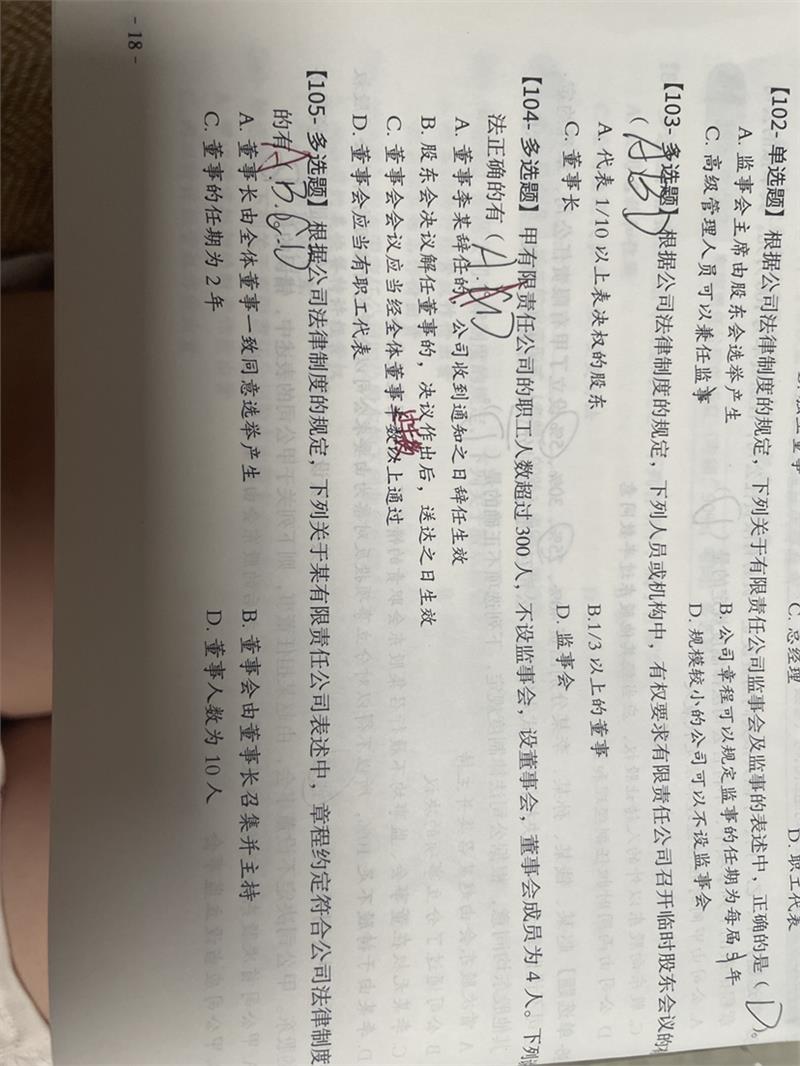 C. 总经理 D. 职工代表
【102- 单选题】根据公司法律制度的规定，下列关于有限责任公司监事会及监事的表述中，正确的是（D）。
A. 监事会主席由股东会选举产生 B. 公司章程可以规定监事的任期为每届5年
C. 高级管理人员可以兼任监事 D. 规模较小的公司可以不设监事会
【103- 多选题】根据公司法律制度的规定，下列人员或机构中，有权要求有限责任公司召开临时股东会议的
（ABD
A. 代表 1/10 以上表决权的股东 B.1/3 以上的董事
C. 董事长 D. 监事会
【104- 多选题】甲有限责任公司的职工人数超过 300 人，不设监事会，设董事会，董事会成员为 4 人。下列
法正确的有（A
A. 董事李某辞任的，公司收到通知之日辞任生效
B. 股东会决议解任董事的，决议作出后，送达之日生效
C. 董事会会议应当经全体董事半数以上通过
过半数
D. 董事会应当有职工代表
【105- 多选题】根据公司法律制度的规定，下列关于某有限责任公司表述中，章程约定符合公司法律制度
的有A.B.C.D
A. 董事长由全体董事一致同意选举产生 B. 董事会由董事长召集并主持
C. 董事的任期为 2 年 D. 董事人数为 10 人
- 18 -